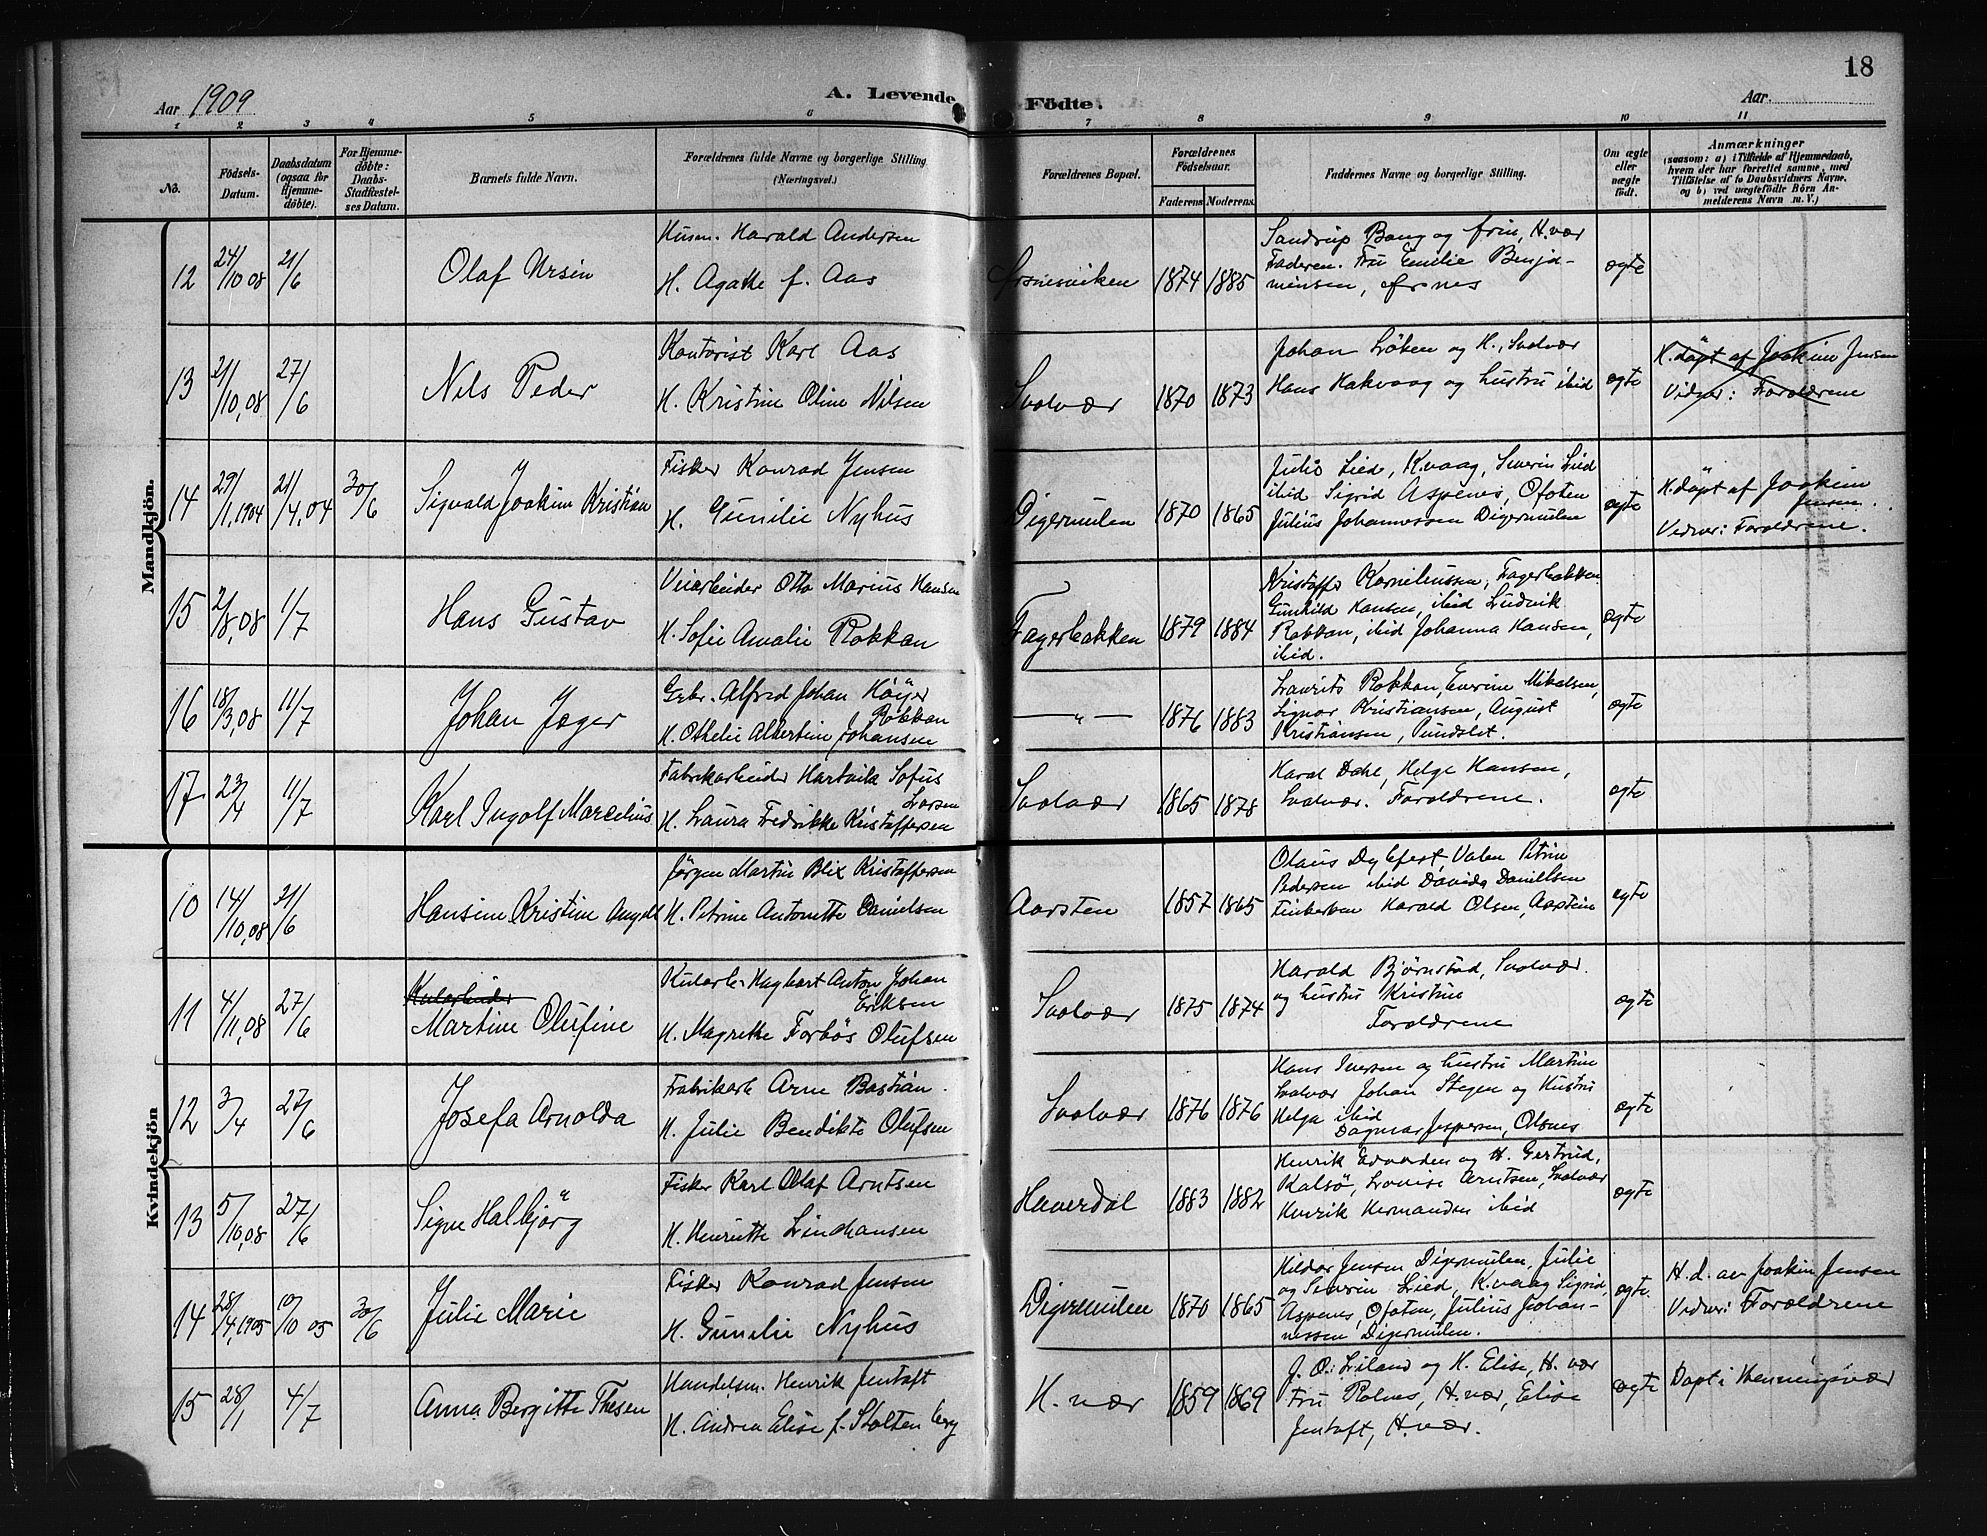 18
Aar 1909
A. Levende Födte.
Aar.
1 2 3 4 5 6 7 8 9 10 11
No.
Födsels-Datum.
Daabsdatum (ogsaa for Hjemme-döbte).
For Hjemme-döbte: Daabs-Stadfæstel-ses Datum.
Barnets fulde Navn.
Forældrenes fulde Navne og borgerlige Stilling. (Næringsvei.)
Forældrenes Bopæl.
Forældrenes Födselsaar.
Faderens Moderens.
Faddernes Navne og borgerlige Stilling.
Om ægte eller uægte födt.
Anmærkninger
(saasom: a) i Tilfælde af Hjemmedaab,
hvem der har forrettet samme, med
Tilföielse af to Daabsvidners Navne,
og b) ved uægtefödte Börn An-
melderens Navn m. V.)
Mandkjön.
12 24/10 08 21/6 Olaf Ursin
Husm. Harald Andersen
H. Agathe f. Aas
1874 1885
Sandrup Bang og frue, H.vær
Faderen. Fru Emilie Benja-
minsen,
ægte
13 21/10,08 27/6 Nils Peder
Kontorist Karl Aas
H. Kristine Oline Nilsen
Svolvær 1870 1873
Johan Löken og H., Svolvær
Hans Hakvaag og hustru ibid
ægte
H.døpt af Joakim Jensen
Vidner: Forældrene
14 29/1,1904 21/4,04 30/6 Sigvald Joakim Kristian
Fisker Konrad Jensen
H. Gunelie Nyhus
Digermulen 1870 1865
Julie Lied, Kvaag, Severin Lied
ibid Sigrid Aspenes, Ofoten
Julius Johannessen Digermulen
ægte
H.døpt af Joakim
Jensen.
Vidner: Forældrene.
15 2/8,08 1/7 Hans Gustav
Veiarbeider Otto Marius Hansen
H. Sofie Amalie Rokkan
Fagerbakken 1879 1884
Kristoffer Kornelinssen, Fagerbakken
Gunhild Hansen, ibid Ludvik
Rokkan, ibid Johanna Hansen,
ibid.
ægte
16 18/3,08 11/7 Johan Jæger
Grbr. Alfred Johan Höyer
Rokkan
H. Othelie Albertine Johansen
— " — 1876 1883
Laurits Rokkan, Everine Mikalsen,
Signor Kristiansen, August
Kristiansen, Pundslet.
ægte
17 23/4 11/7 Karl Ingolf Marcelius
Fabrikarbeider Hartvik Sofus
Larsen
H. Laura Fredrikke Kristoffersen
Svolvær 1865 1878
Haral Dahl, Helge Hansen,
Svolvær. Forældrene.
ægte
Kvindekjön
10 14/10,08 21/6 Hansine Kristine Angell
Jörgen Martin Blix Kristoffersen
H. Petrine Antonette Danielsen
Aarsten 1857 1865
Pedersen ibid Davida Daniellsen
Harald Olsen,
ægte
11 4/11,08 27/6
Kularbeider
Martine Olufine
Kularb. Hagbart Anton Johan
Eriksen
H. Magrethe Forbös Olufsen
Svolvær 1875 1874
Harald Björnstad, Svolvær.
og hustru Kristine
Forældrene
ægte
12 3/4 27/6 Josefa Arnolda
Fabrikarb Arne Bastian.
H. Julie Bendikte Olufsen
Svolvær 1876 1876
Hans Iversen og hustru Martine
Svolvær Johan Stegen og Hustru
Helga ibid
Dagmar Jespersen, Olsnes
ægte
13 5/10,08 27/6 Signe Halbjörg
Fisker Karl Olaf Arntsen
H. Henriette Lindhansen
Haverdal 1883 1882
Henrik Edvarden og H. Gertrud,
Kalsö, Lovise Arntsen, Svolvær
Henrik Hermandsen ibid
ægte
14 28/4,1905 10/10 05 30/6 Julie Marie
Fisker Konrad Jensen
H. Gunelie Nyhus
Digermulen 1870 1865
Hildor Jensen Digermulen, Julie
og Severin Lied, Kvaag Sigrid
Aspenes, Ofoten, Julius Johan-
nessen Digermulen.
ægte.
H.d. av Joakim Jensen
Vidner: Forældrene
15 28/1 4/7 Anna Bergitte Thesen
Handelsm. Henrik Jentoft
H. Andrea Elise f. Stoltenberg
H.vær 1859 1869
J. O. Liland og H. Elise, H.vær
Fru Rolnes, H.vær, Elise
Jentoft, H.vær.
ægte
Døpt i Henningsvær